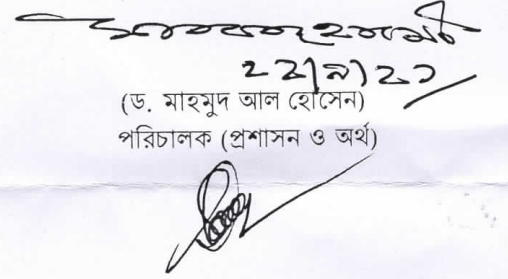 ২২|৯|২১
(ড. মাহমুদ আল হোসেন)
পরিচালক (প্রশাসন ও অর্থ)